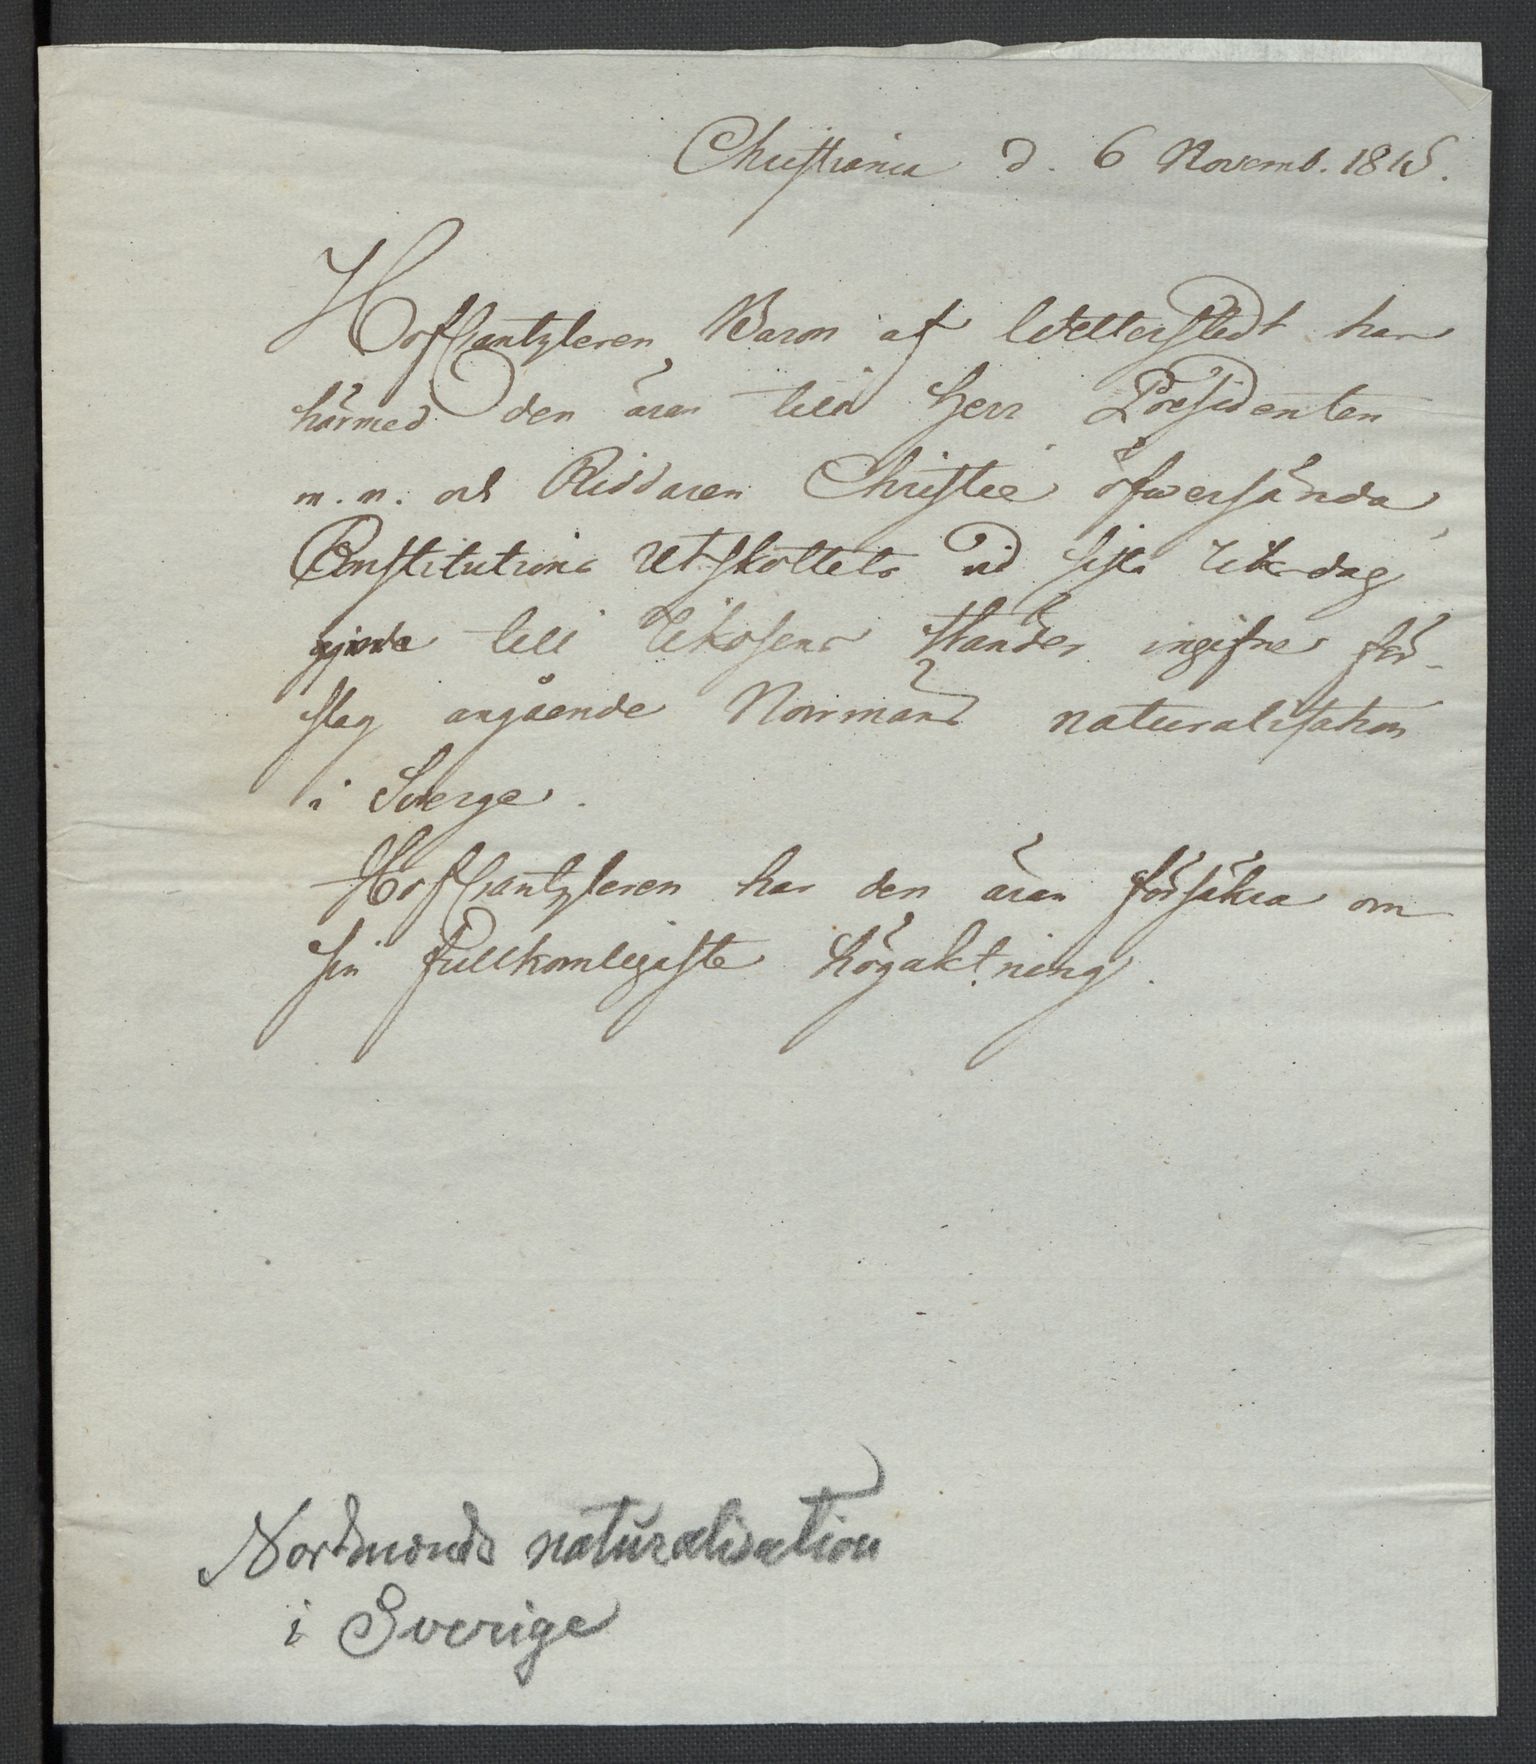 Christiania d. 6 Novemb. 1815.
HofCantzleren Baron af Wetterstedt har
härmed den äran till Herr Præsidenten
m. m. och Riddaren Christie öfwersända
Constitutions Utskottets vid sista Riksdag
gjorde till Riksens Ständer ingifne för-
slag angående Norrmäns naturalisation
i Sverge.
HofCantzleren har den äran försäkra om
sin fullkomligaste högaktning.
Nordmænds naturalisation
i Sverige